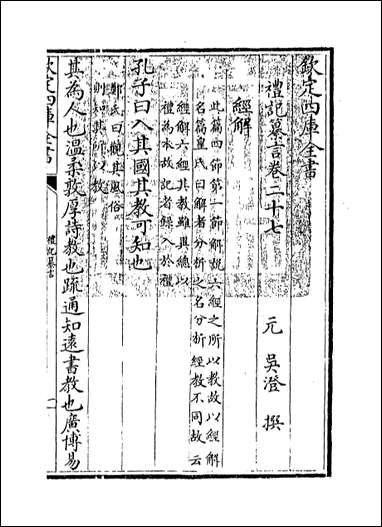 欽定四庫全書
禮記纂言卷二十七
元　吳澄　撰
經解
此篇四節第一節解説六經之所以教故以經解
名篇皇氏曰解者分析之名分析經教不同故云
經解六經其教雖異總以
禮為本故記者録入於禮
孔子曰入其國其教可知也
鄭氏曰觀其風俗
則知其所以教
其為人也溫柔敦厚詩教也疏通知遠書教也廣博易
欽定四庫全書
禮記纂言